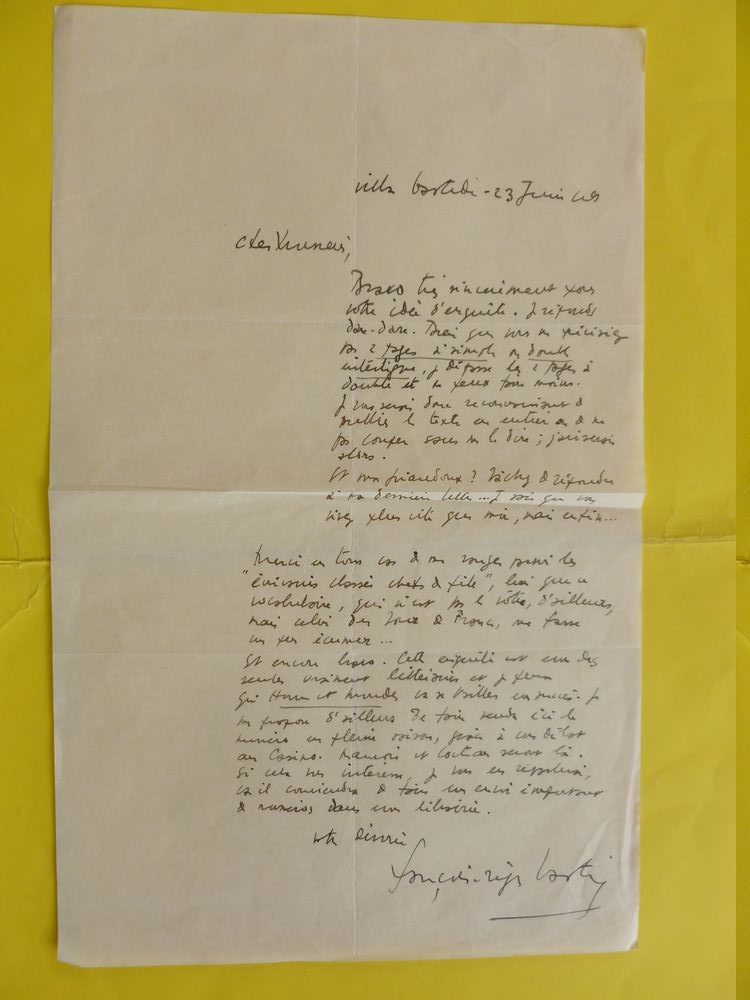 villa - 23 Juin
cher
Bravo très sincèrement pour
votre idée d'enquête. Je réponds
dare-dare. Bien que vous me précisiez
pas 2 pages à simple ou double
interligne, je dépasse les 2 pages à
double et ne peux faire moins.
Je vous serai donc reconnaissant de
publier le texte en entier ou de ne
pas couper sans me le dire ; j'aviserai
alors.
Et ? Tâchez de répondre
à ma dernière lettre... Je sais que vous
vivez plus vite que moi, mais enfin...
Merci en tous cas de me ranger parmi les
"écrivains classés chefs de file", bien que ce
vocabulaire, qui n'est pas le vôtre, d'ailleurs,
mais celui du Tour de France, me fasse
un peu écumer...
Et encore bravo. Cette enquête est une des
seules vraiment littéraires et je pense
qui Hommes et Mondes va se . Je
me propose d'ailleurs de faire vendre ici le
numéro en pleine saison, grâce à un débat
au Casino. Mauriac et Cocteau seront là.
Si cela vous intéresse, je vous en reparlerai,
car il conviendra de faire un envoi important
de numéros dans une librairie.
votre dévoué
françois-régis bastide